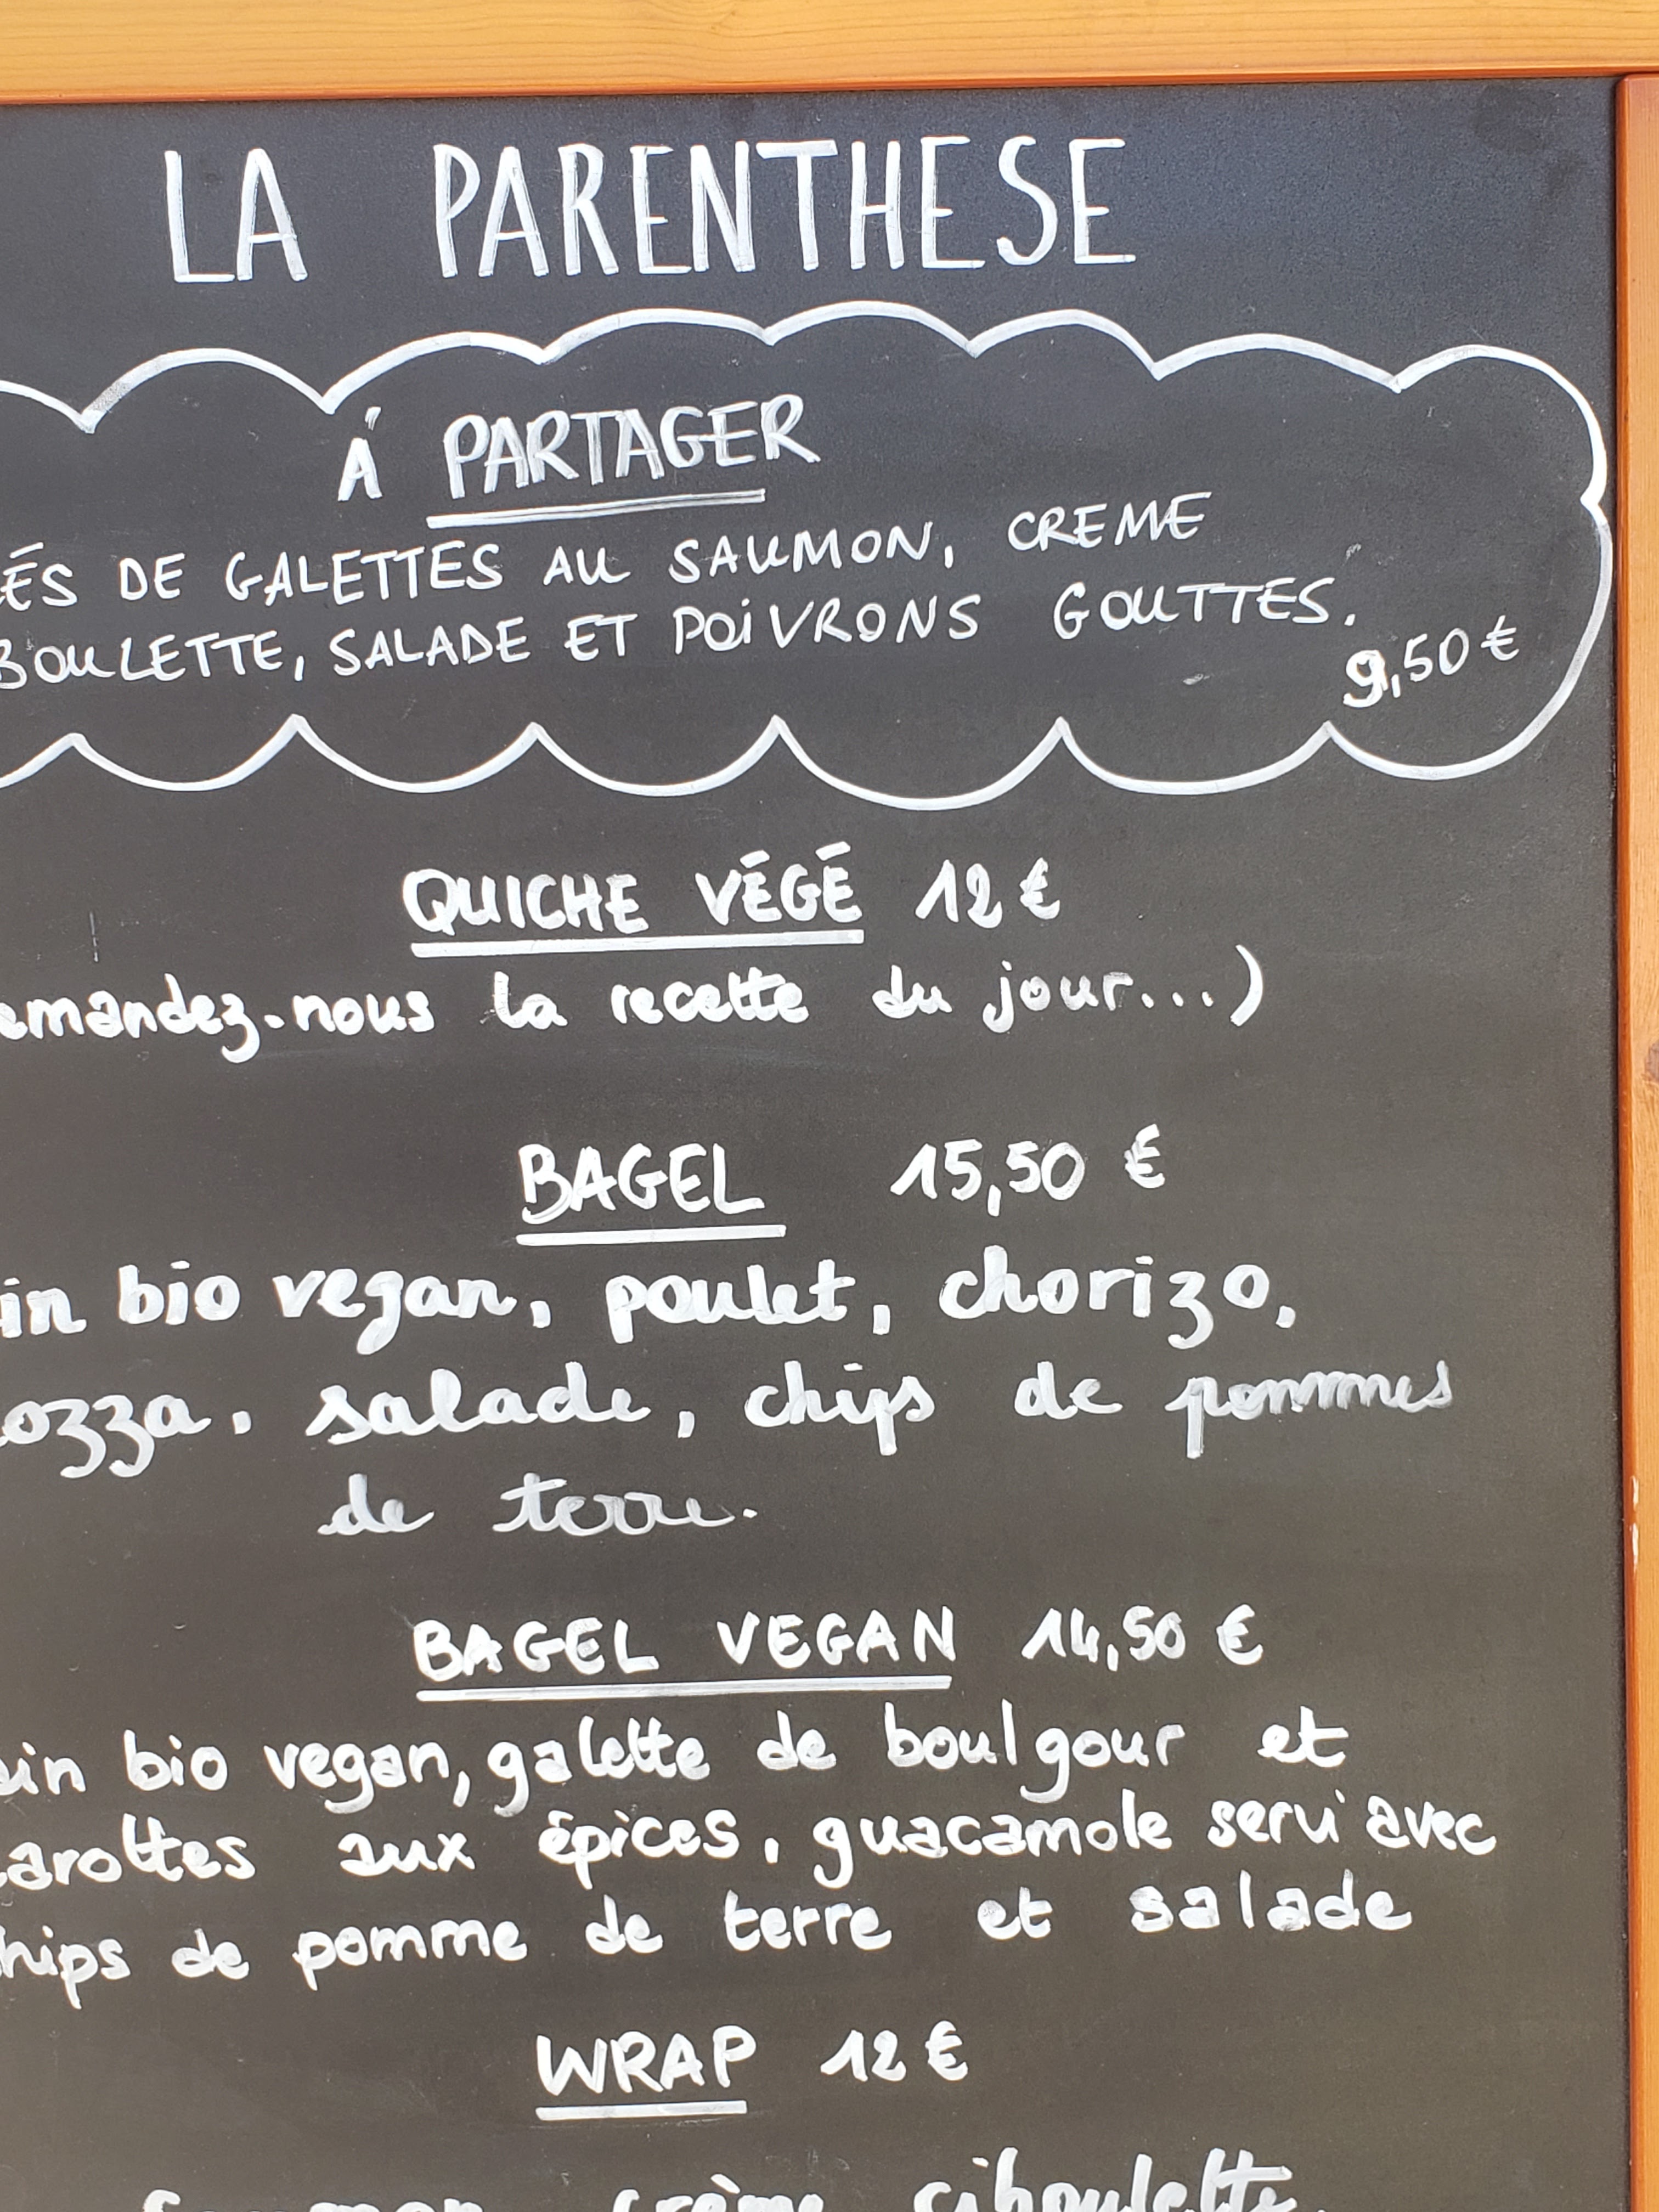 LA PARENTHESE
À PARTAGER
ÉS DE GALETTES AU SAUMON, CREME
BOULETTE, SALADE ET POIVRONS GOUTTES.
9,50 €
QUICHE VÉGÉ 12 €
emandez-nous la recette du jour...)
BAGEL 15,50 €
in bio vegan, poulet, chorizo,
ozza, salade, chips de pommes
de terre.
BAGEL VEGAN 14,50 €
ain bio vegan, galette de boulgour et
carottes aux épices, guacamole servi avec
hips de pomme de terre et salade
WRAP 12 €
Saumon, crème ciboulette,